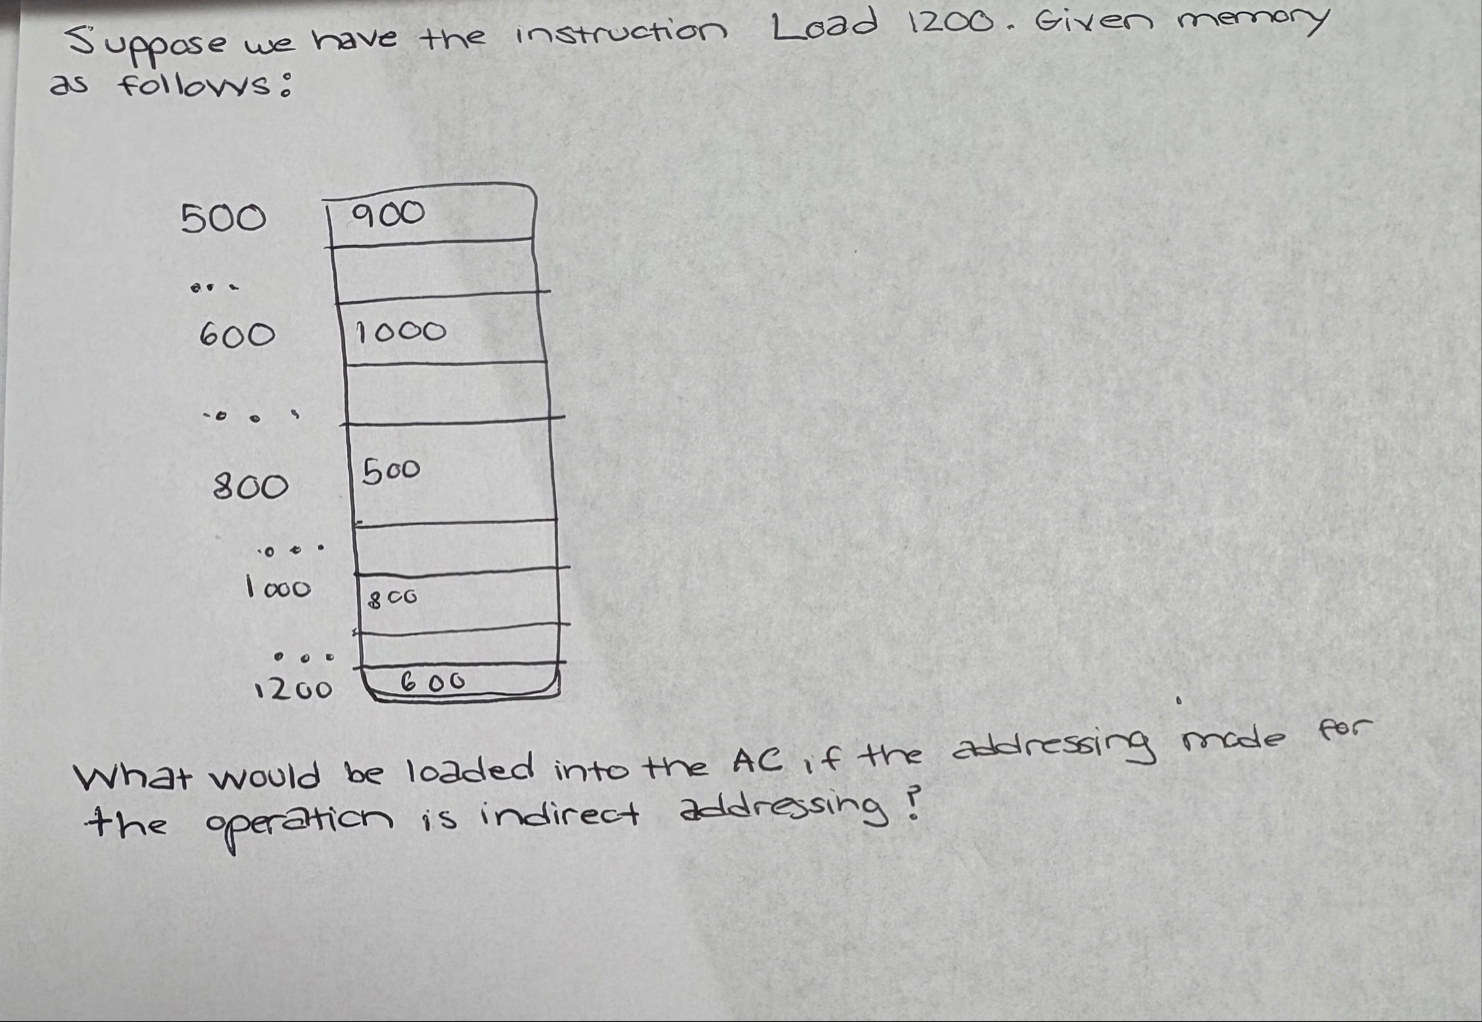 Suppose we have the instruction Load 1200. Given memory
as follows:
500 900
...
600 1000
....
800 500
...
1000 800
...
1200 600
What would be loaded into the AC if the addressing mode for
the operation is indirect addressing?